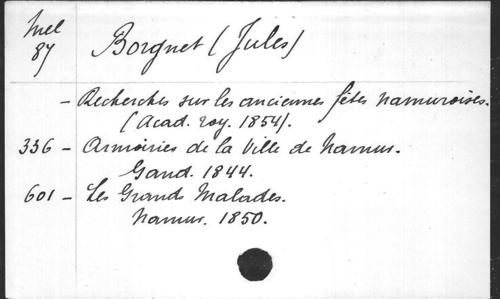 Mel Borgnet (Jules)
87
- Recherches sur les anciennes fêtes namuroises.
(Acad. roy. 1854).
336 - Armoiries de la Ville de Namur.
Gand. 1844.
601 - Les Grands Malades.
Namur. 1850.